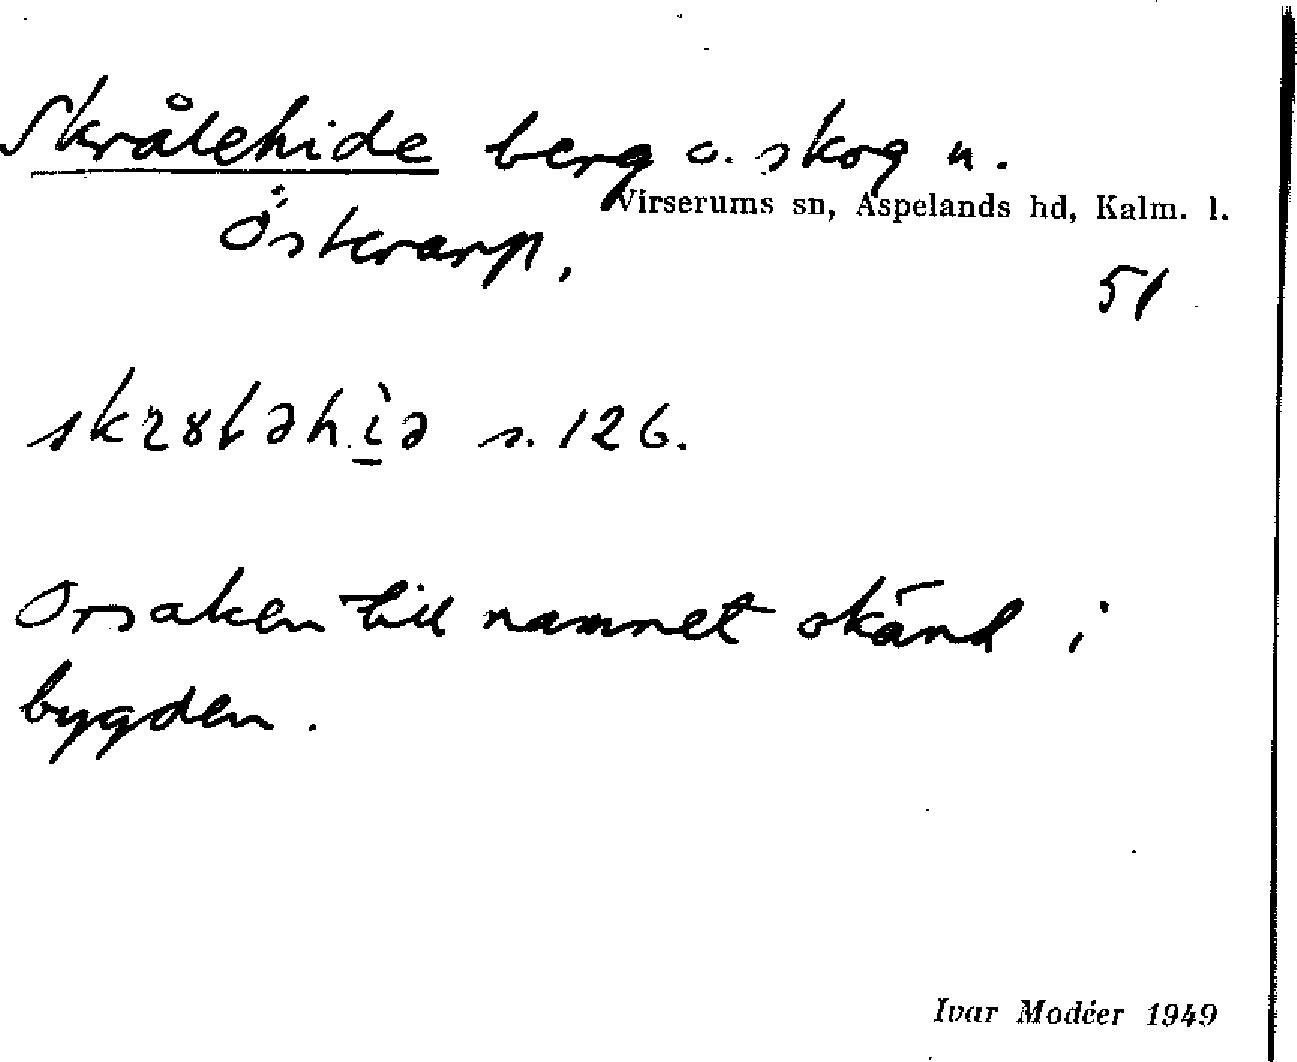 Skrålehide berg o. skog u.
Virserums sn, Aspelands hd, Kalm. l.
Österarp,
51
s. 126.
Orsaken till namnet okänd i
bygden.
Ivar Modéer 1949